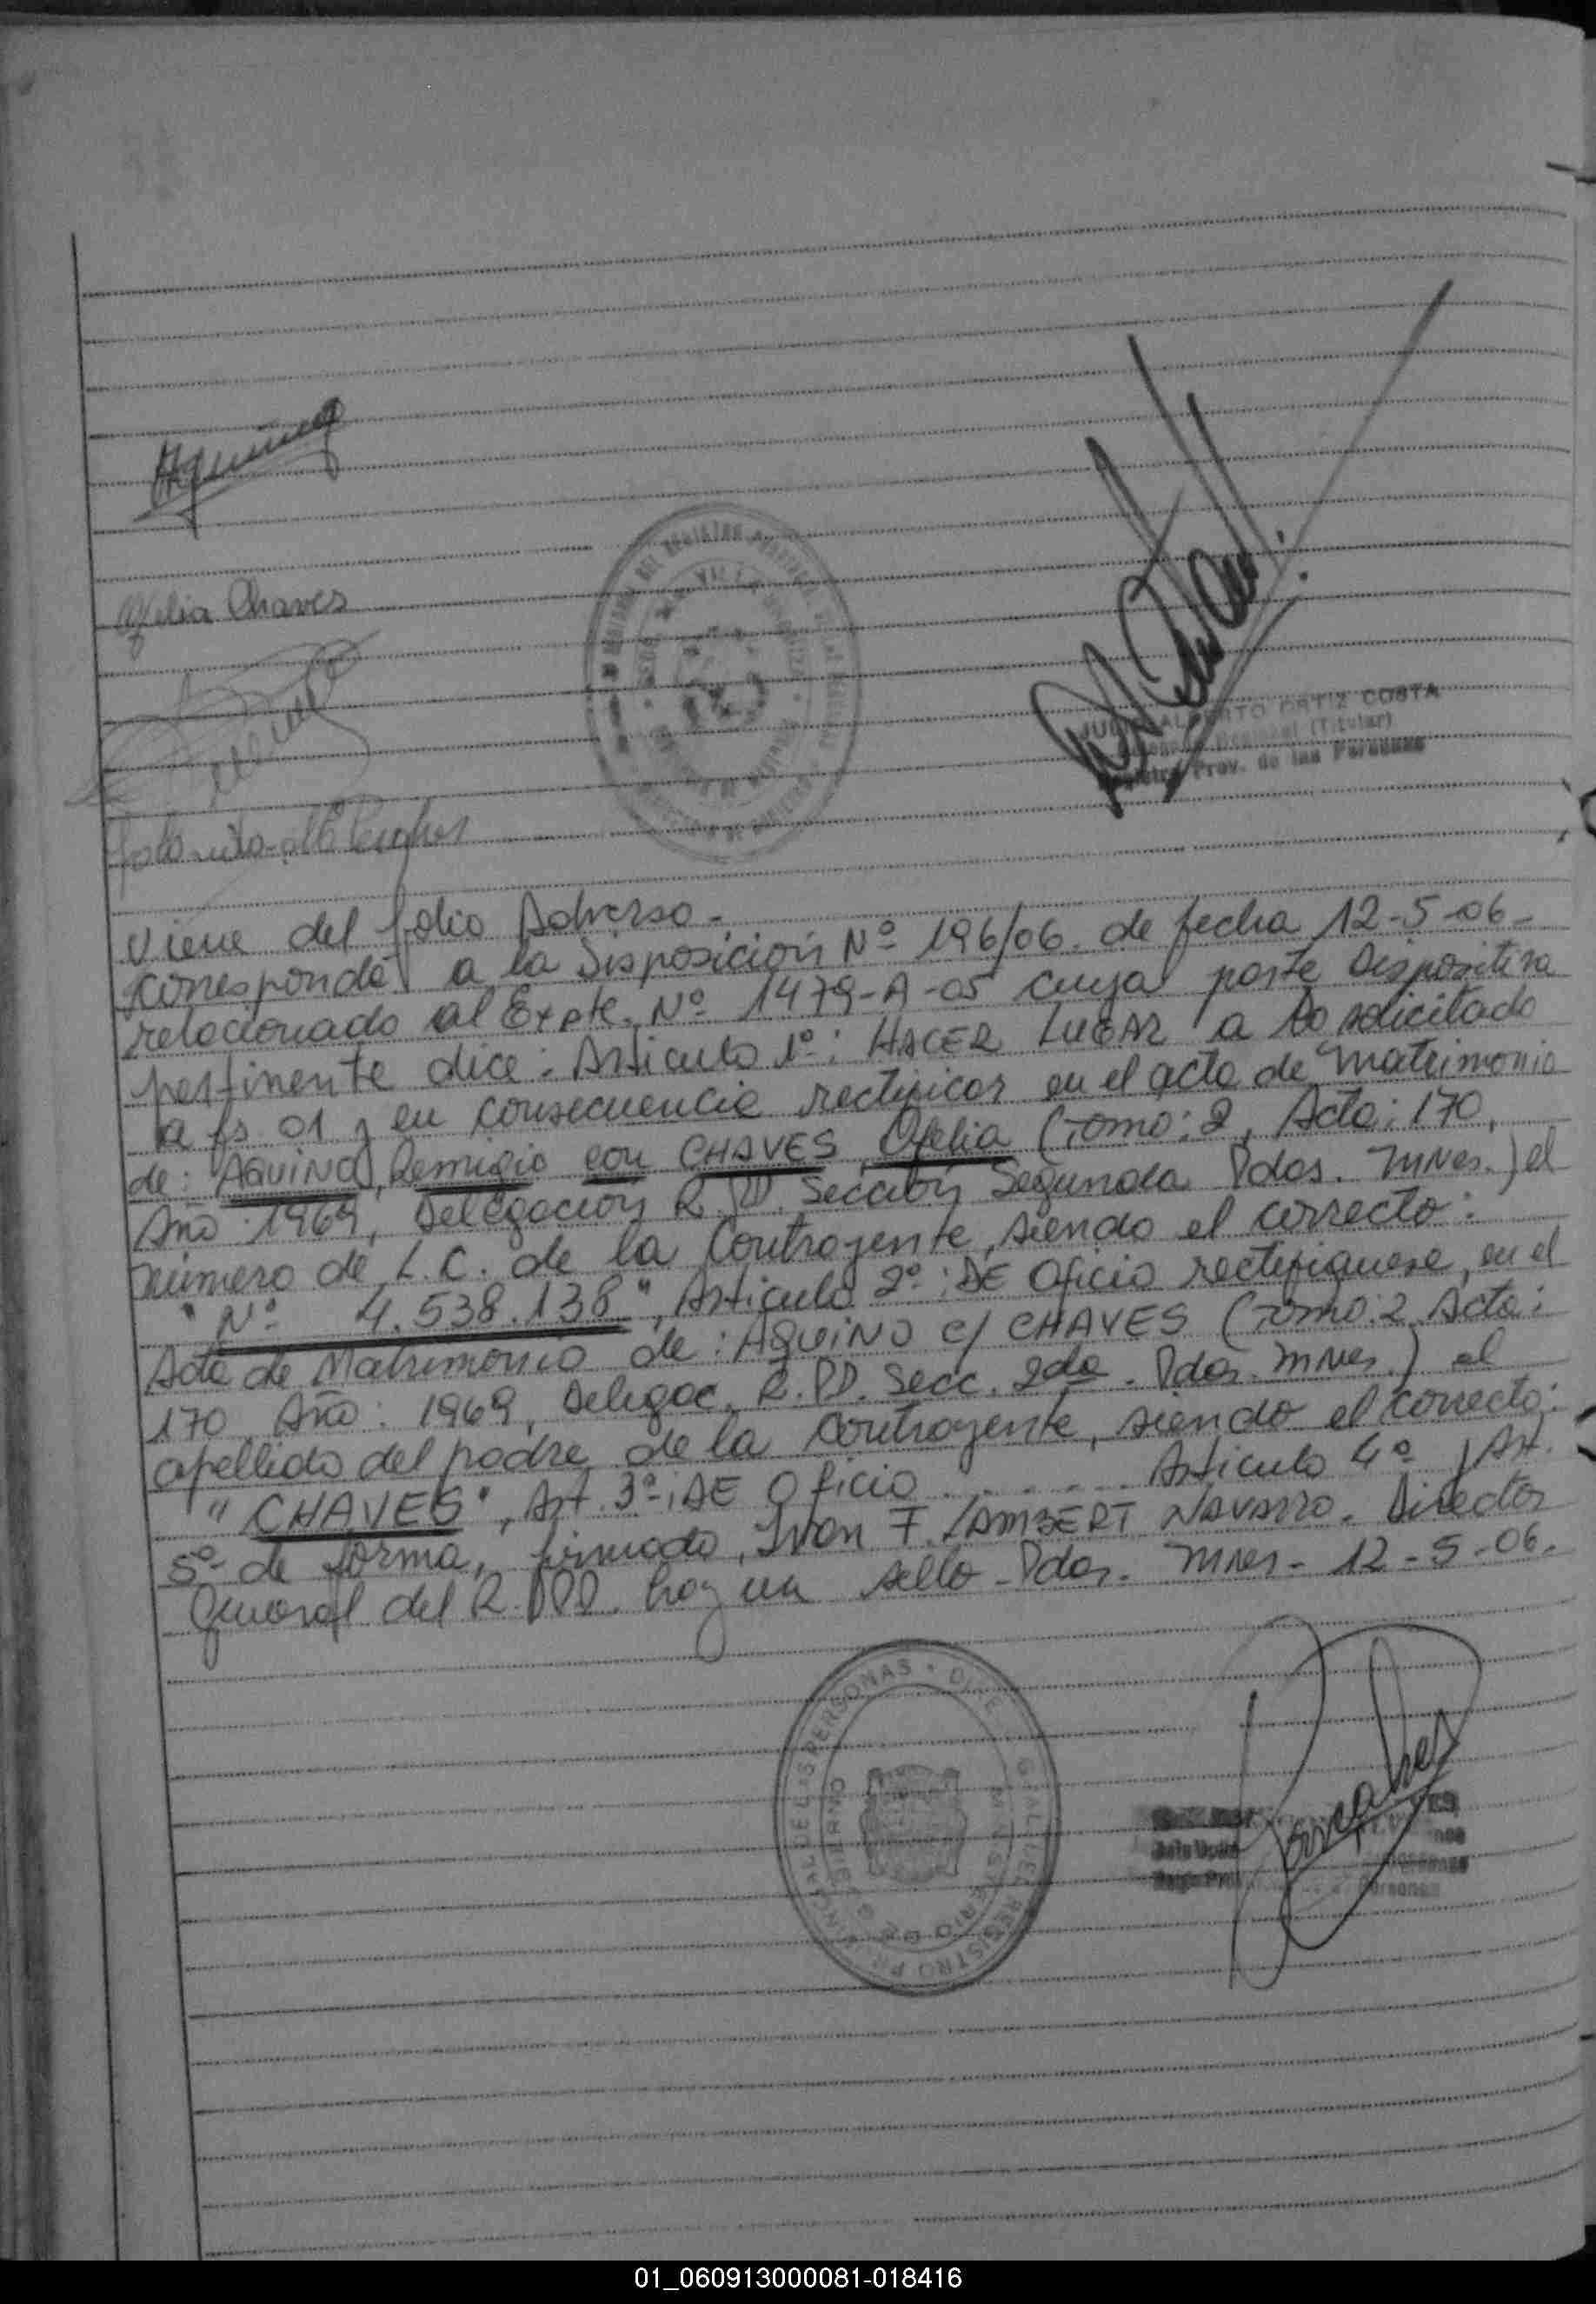 Aquino
Ofelia Chaves
JULIO ALBERTO ORTIZ COSTA
Delegado Regional (Titular)
Registro Prov. de las Personas
Viene del folio Adverso.-
Corresponde a la Disposición Nº 196/06. de fecha 12-5-06-
relacionado al Expte. Nº 1479-A-05 cuya parte Dispositiva
pertinente dice: Articulo 1º: HACER LUGAR a lo solicitado
a fs 01 y en consecuencia rectificar en el acta de matrimonio
de: AQUINO, Remigio con CHAVES, Ofelia (Tomo: 2, Acta: 170,
Año: 1969, Delegación R.PP. Sección Segunda Pdas. Mnes.) el
número de L.C. de la Contrayente, siendo el correcto:
"Nº 4.538.138", Articulo 2º: DE Oficio rectifiquese, en el
Acta de Matrimonio de: AQUINO c/ CHAVES (Tomo: 2 Acta:
170 Año: 1969, Delegac. R.PP. Secc. 2da. Pdas. Mnes.) el
apellido del padre de la contrayente, siendo el correcto:
"CHAVES", Art. 3º: DE Oficio ........ Articulo 4º y Art.
5º de forma, firmado, Ivan F. LAMBERT NAVARRO. Director
General del R.PPP. hay un sello - Pdas. Mnes - 12-5-06.
REGISTRO PROVINCIAL DE LAS PERSONAS
MINISTERIO DE GOBIERNO
01_060913000081-018416